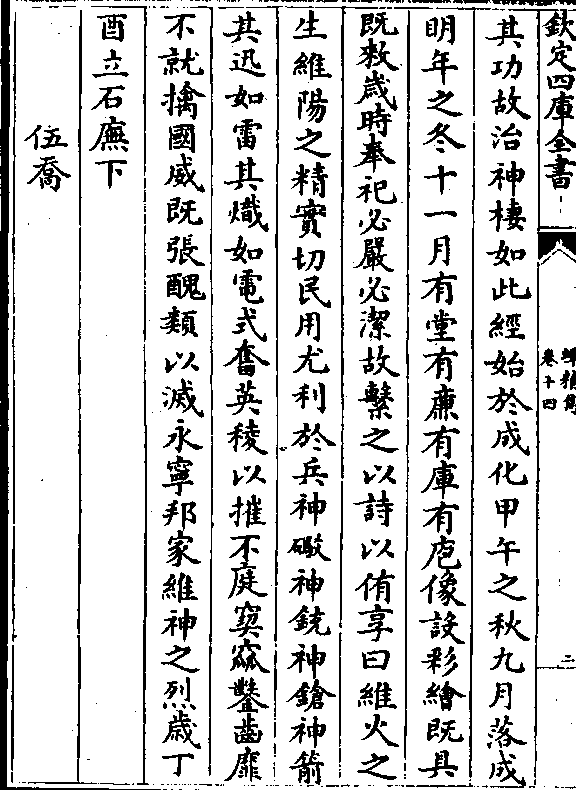 欽定四庫全書
卷十四
二
其功故治神棲如此經始於成化甲午之秋九月落成
明年之冬十一月有堂有廡有庫有庖像設彩繪既具
既敕歲時奉祀必嚴必潔故繫之以詩以侑享曰維火之
生維陽之精實切民用尤利於兵神礮神銃神鎗神箭
其迅如雷其熾如電式奮英稜以摧不庭窫窳鑿齒靡
不就擒國威既張醜類以滅永寧邦家維神之烈歲丁
酉立石廡下
伍喬